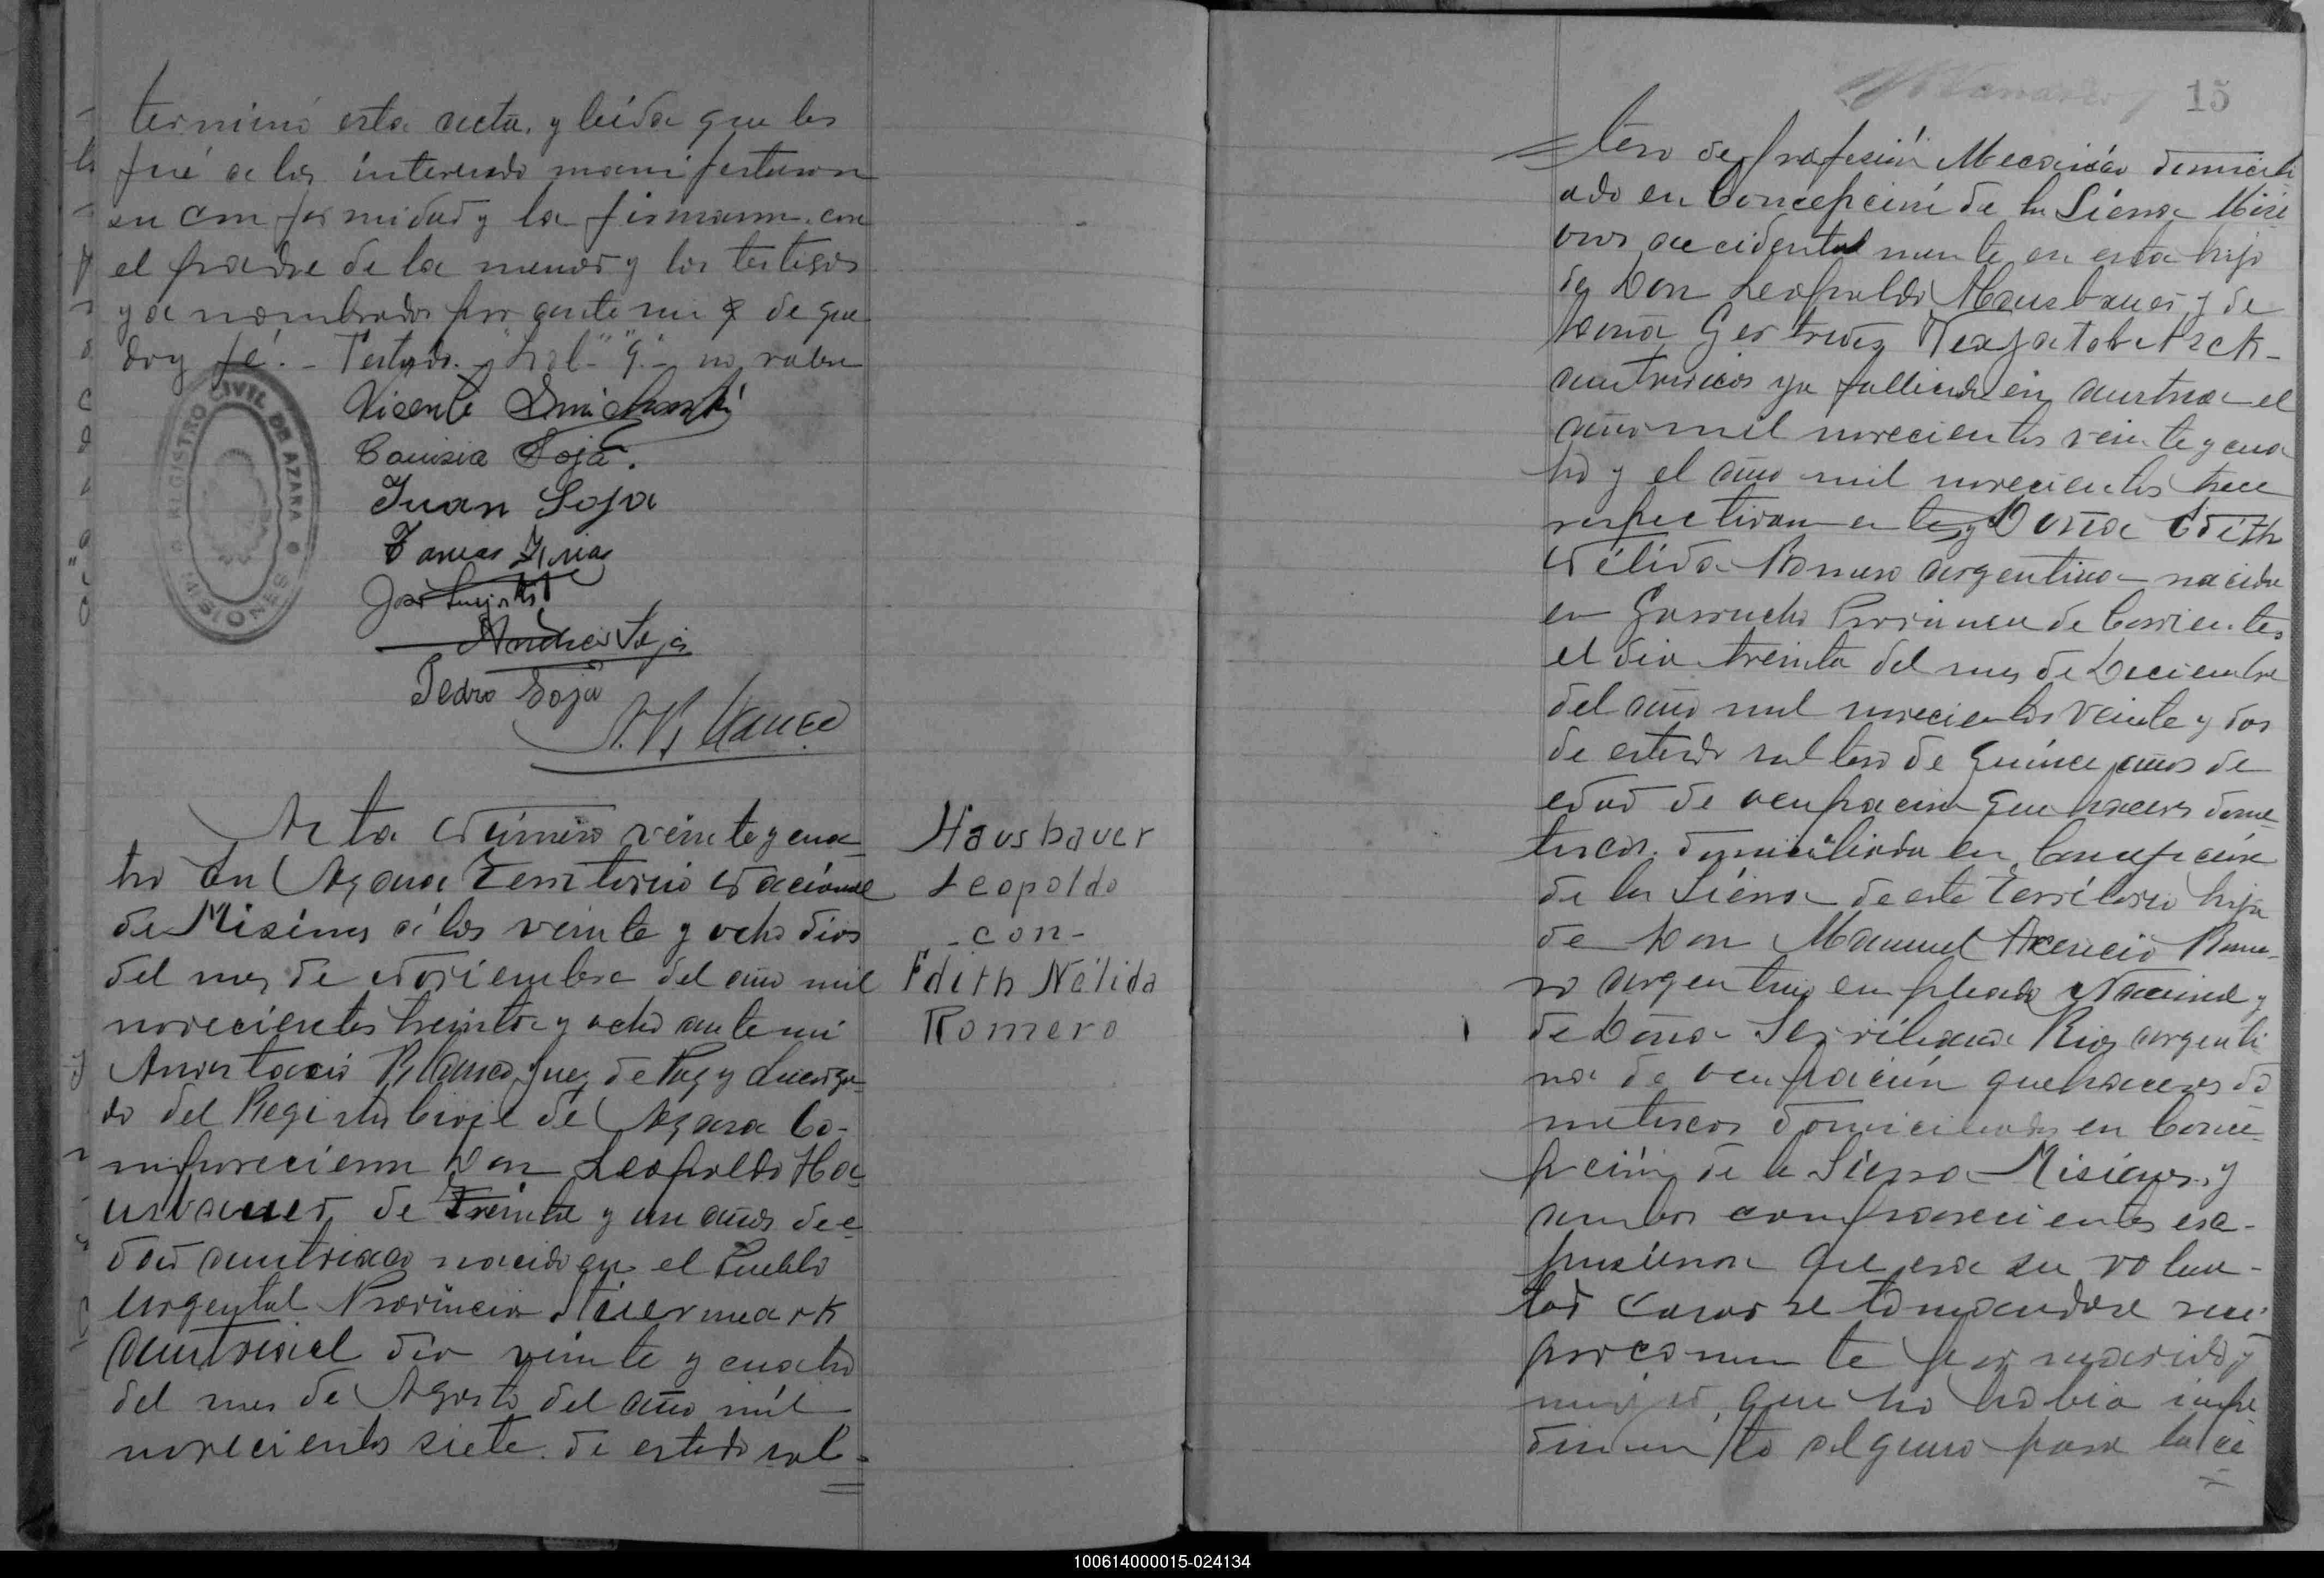 terminó esta acta, y leída que les
fué a los interesado manifestaron
su conformidad y la firmaron con
el padre de la menor y los testigos
ya nombrados por ante mi q de que
doy fé. - Testado - "hol" - "q" - no valen
Vicente
Soja.
Juan Soja
José
Andrés Soja
Pedro Soja
REGISTRO CIVIL DE AZARA
MISIONES
Acta Número veinte y cua
tro En Azara Territorio Nacional
de Misiones á los veinte y ocho dias
del mes de Noviembre del año mil
novecientos treinta y ocho ante mi
Anastacio Blanco, Juez de Paz y Encarga
do del Registro Civil de Azara Co-
mparecieron Don Leopoldo Ha
usbauer, de Treinta y un años de e
dad austriaco nacido en el Pueblo
Provincia Stiermark
Austria el dia veinte y cuatro
del mes de Agosto del año mil
novecientos siete de estado sol=
Hausbauer
Leopoldo
-con-
Edith Nélida
Romero
15
tero de profesión Mecánico domicili
ado en Concepción de la Sierra Misi
ones accidentalmente en esta hijo
de Don Leopoldo Hausbauer y de
Doña Gertrudes
austriacos ya fallecidos en Austria el
año mil novecientos veinte y cua
tro y el año mil novecientos trece
respectivamente y Doña Edith
Nélida Romero argentina nacida
en Garruchos Provincia de Corrientes
el dia treinta del mes de Deciembre
del año mil novecientos veinte y dos
de estado soltera de quince años de
edad de ocupación quehaceres dome
ticos domiciliada en Concepción
de la Sierra de este Territorio hija
de Don Manuel Acencio Rome-
ro argentino empleado Nacional y
de Doña Serviliana Rios argenti
na de ocupación quehaceres do
mesticos domiciliados en Conce
pción de la Sierra Misiones, y
ambos comparecientes esc-
pusieron que era su volun-
tad casarse tomandose reci
procamente por marido y
mujer, que no habia impe
dimento alguno para la ce
=
100614000015-024134